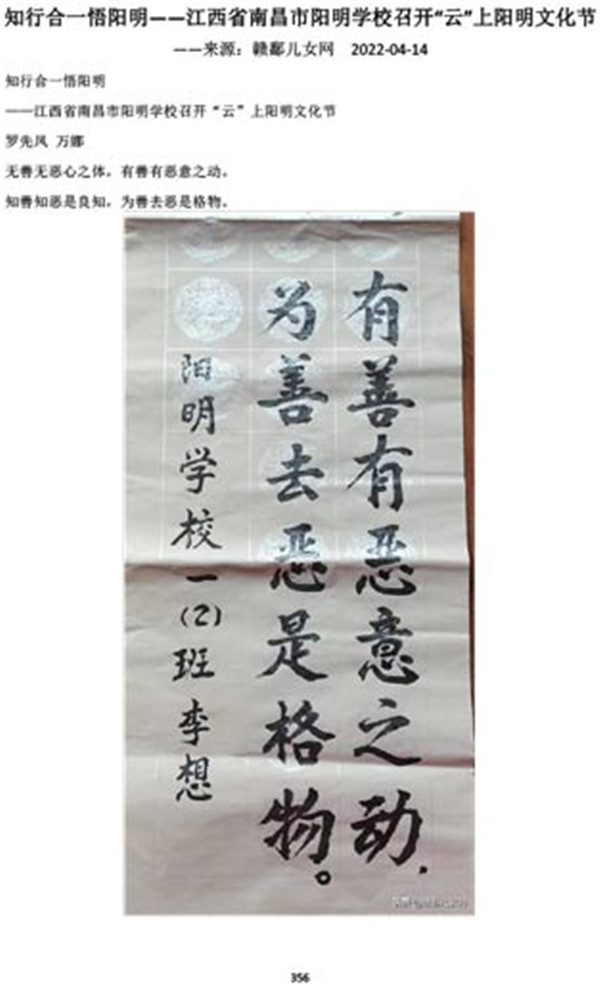 知行合一悟阳明——江西省南昌市阳明学校召开“云”上阳明文化节
——来源：赣鄱儿女网 2022-04-14
知行合一悟阳明
——江西省南昌市阳明学校召开“云”上阳明文化节
罗先凤 万娜
无善无恶心之体，有善有恶意之动。
知善知恶是良知，为善去恶是格物。
有善有恶意之动，
为善去恶是格物。
阳明学校一（2）班李想
356